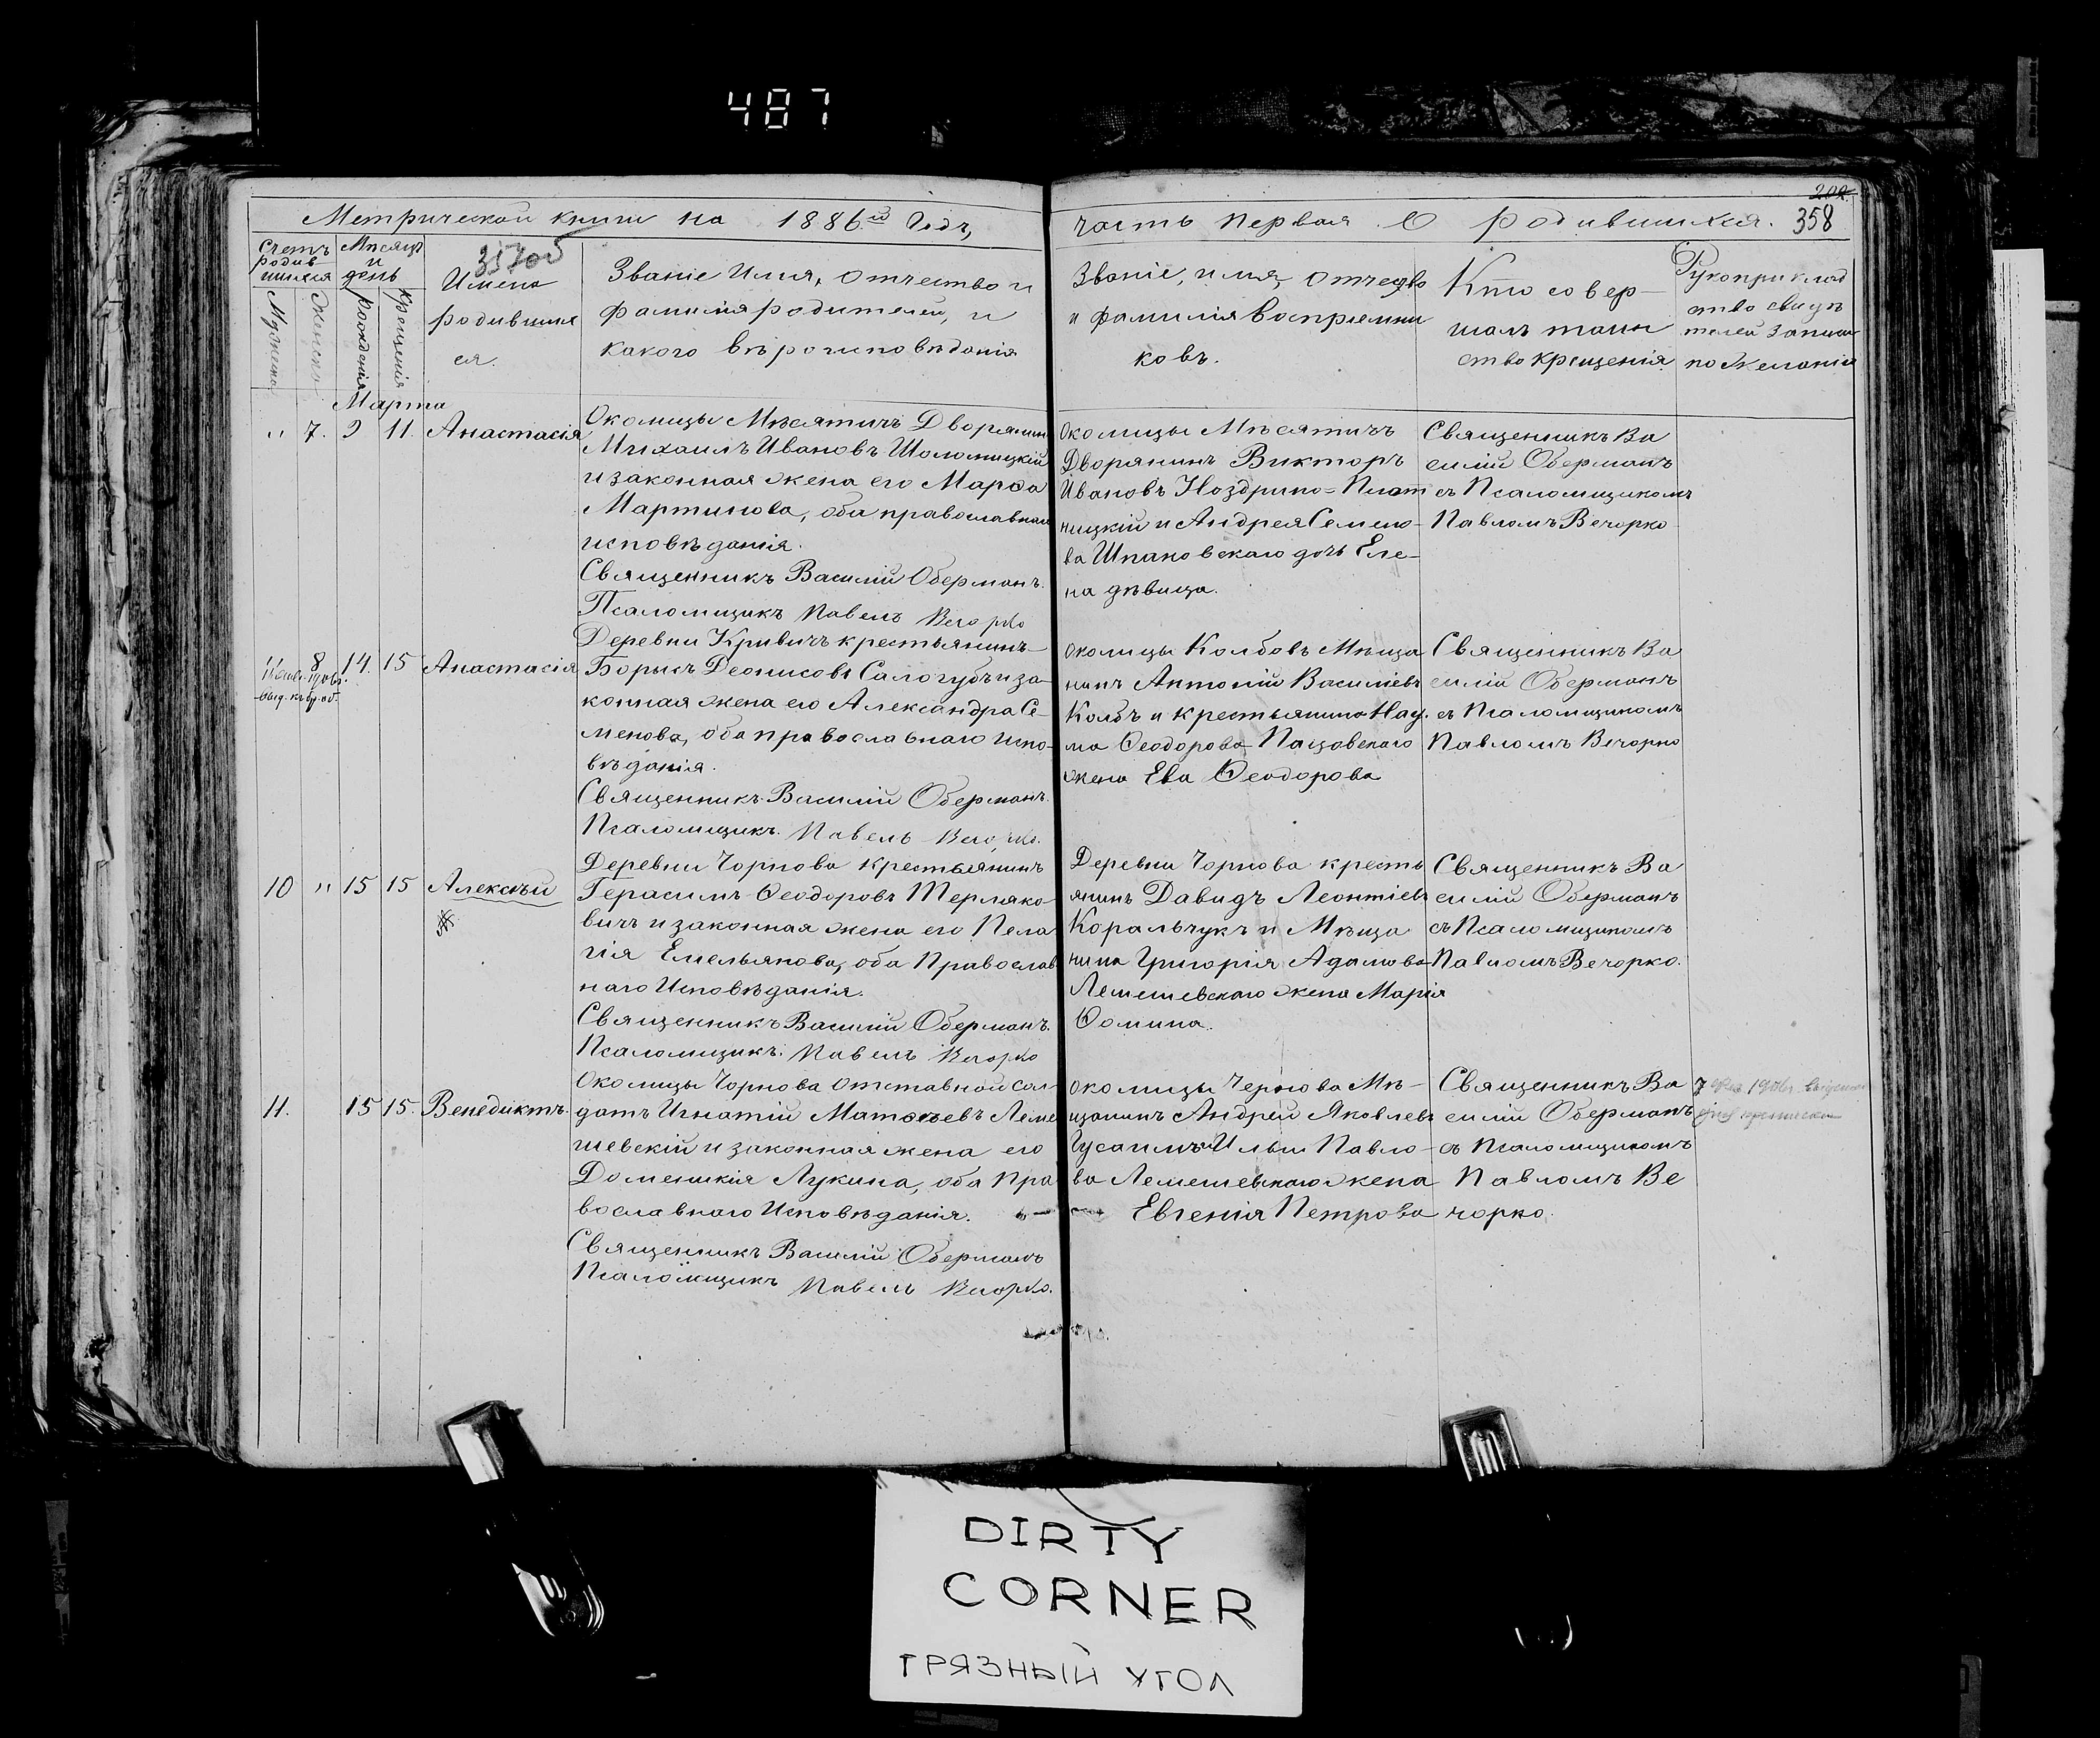 487
Метрической книги на 1886й Годъ,
часть первая О родившихся.
202
358
357об
Счетъ родив
шихся
Мужеска
Женска
Мѣсяцъ
и
день
рожденія
крещенія
Имена
родивших
ся.
Званіе Имя, отчество и
фамилія родителей, и
какого вѣроисповѣданія
Званіе, имя, отчество
и фамилія воспріемни
ковъ.
Кто совер-
шалъ таин
ство крещенія.
Рукоприклад
ство свидѣ
телей записи
по желанію
Марта
" 7. 9 11. Анастасія
Околицы Мѣсятичъ Дворянин
Михаилъ Ивановъ Шоломицкій
и законная жена его Марѳа
Мартинова, оба православнаго
исповѣданія.
Священникъ Василій Оберманъ.
Псаломщикъ Павелъ Вечорко
Околицы Мѣсятичъ
Дворянинъ Викторъ
Ивановъ Ноздрино=Плот
ницкій и Андрея Семено-
ва Шпаковскаго дочь Еле-
на дѣвица.
Священникъ Ва
силій Оберманъ
съ Псаломщикомъ
Павломъ Вечорко
8 14. 15 Анастасія
Деревни Кривичъ крестьянинъ
Борисъ Деонисовъ Сологубъ и за-
конная жена его Александра Се-
менова, оба православнаго испо-
вѣданія.
Священникъ Василій Оберманъ.
Псаломщикъ. Павелъ Вечорко.
околицы Колбовъ Мѣща
нинъ Антоній Василіевъ
Колбъ и крестьянина Нау-
ма Ѳеодорова Пацовскаго
жена Ева Ѳеодорова
Священникъ Ва
силій Оберманъ
съ Псаломщикомъ
Павломъ Вечорко
10 " 15 15 Алексѣй
Деревни Чорнова крестьянинъ
Герасимъ Ѳеодоровъ Терляко-
вичъ и законная жена его Пела
гія Емельянова, оба Православ
наго Исповѣданія.
Священникъ Василій Оберманъ.
Псаломщикъ. Павелъ Вечорко
Деревни Чорнова кресть
янинъ Давидъ Леонтіевъ
Коральчукъ и Мѣща
нина Григорія Адамова
Лемешевскаго жена Марія
Ѳомина.
Священникъ Ва
силій Оберманъ
съ Псаломщикомъ
Павломъ Вечорко.
11. 15 15. Венедиктъ.
Околицы Чорнова отставной сол-
датъ Игнатій Матѳеевъ Леме
шевскій и законная жена его
Доменикія Лукина, оба Пра
вославнаго Исповѣданія.
Священникъ Василій Оберманъ
Псаломщикъ Павелъ Вечорко.
околицы Чернова Мѣ-
щанинъ Андрей Яковлевъ
Гусаимъ и Ильи Павло-
ва Лемешевскаго жена
Евгенія Петрова
Священникъ Ва
силій Оберманъ
съ Псаломщикомъ
Павломъ Ве
чорко.
DIRTY
CORNER
ГРЯЗНЫЙ УГОЛ